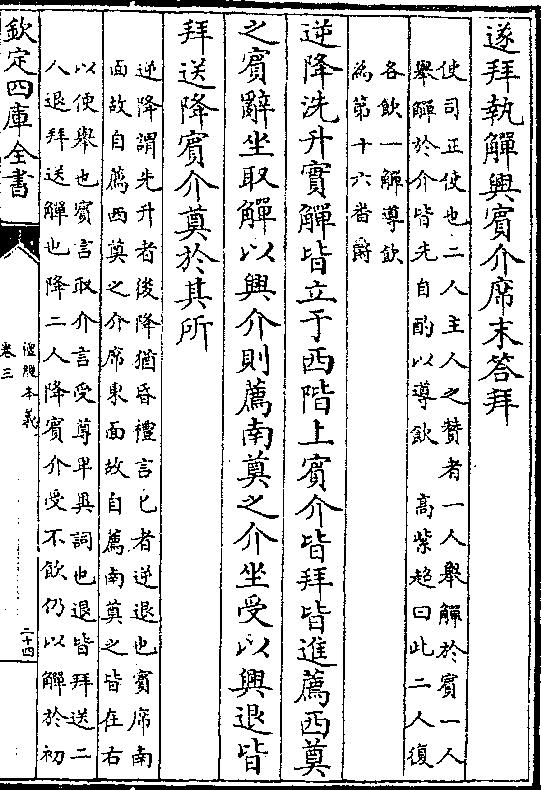 遂拜執觶興賓介席末答拜
使司正使也二人主人之贊者一人舉觶於賓一人
舉觶於介皆先自酌以導飲　高紫超曰此二人復
各飲一觶導飲
為第十六番爵
逆降洗升實觶皆立于西階上賓介皆拜皆進薦西奠
之賓辭坐取觶以興介則薦南奠之介坐受以興退皆
拜送降賓介奠於其所
逆降謂先升者後降猶昏禮言匕者逆退也賓席南
面故自薦西奠之介席東面故自薦南奠之皆在右
以便舉也賓言取介言受尊卑異詞也退皆拜送二
人退拜送觶也降二人降賓介受不飲仍以觶於初
欽定四庫全書
禮經本義
卷三
二十四